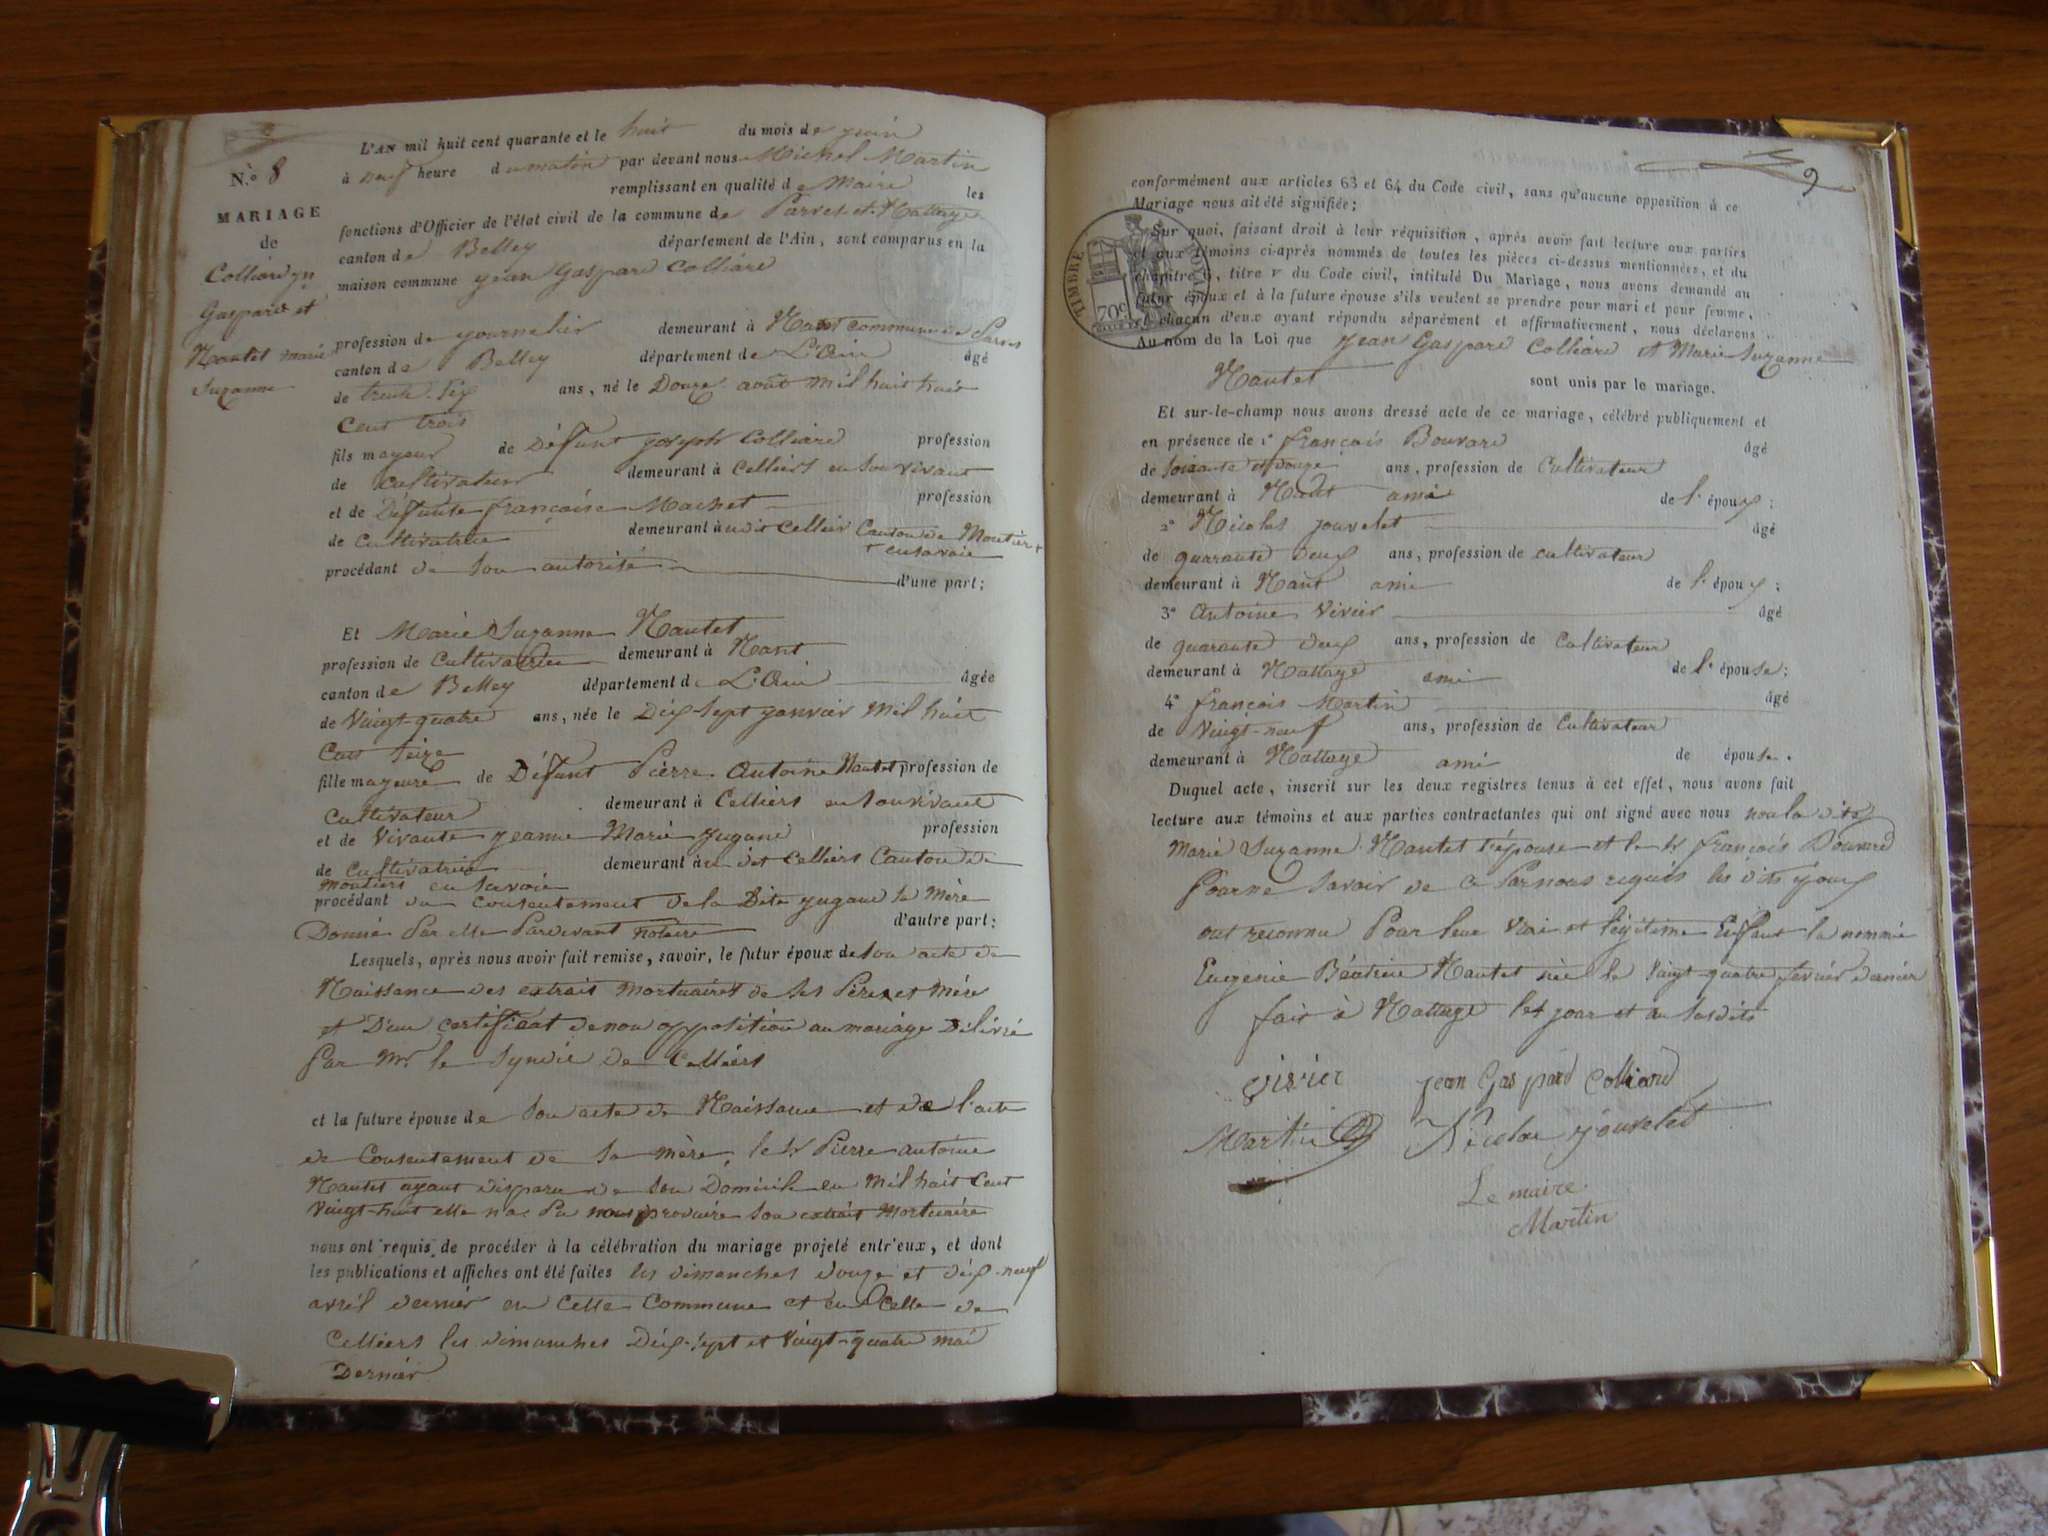 N.o 8
MARIAGE
de
Colliard jn
Gaspard et
Nantet marie
Suzanne
L'AN mil huit cent quarante et le huit du mois de juin
à neuf heure du matin par devant nous Michel Martin
remplissant en qualité de Maire les
fonctions d'Officier de l'état civil de la commune de Parves et Nattage
canton de Belley département de l'Ain, sont comparus en la
maison commune jean Gaspard Colliard
profession de journalier demeurant à Nant commune de Parves
canton de Belley département de L'Ain âgé
de trente six ans, né le Douze août mil huit huit
Cent trois
fils mayeur de Défunt joseph Colliard profession
de cultivateur demeurant à Celliers en son vivant
et de Défunte françoise Machet profession
de cultivatrice demeurant à udit Cellier Canton de Moutier +
+ en savoie
procédant de son autorité d'une part;
Et Marie Suzanne Nantet
profession de Cultivatrice demeurant à Nant
canton de Belley département de L'Ain âgée
de Vingt-quatre ans, née le Dix sept janvier mil huit
Cent seize
fille mayeure de Défunt Pierre Antoine Nantet profession de
cultivateur demeurant à Celliers en son vivant
et de Vivante jeanne Marie jugand profession
de Cultivatrice demeurant à u dit Celliers Canton de
moutiers en savoie
procédant du consentement de la Dite jugand sa Mère
Donné Par elle Pardevant notaire d'autre part;
Lesquels, après nous avoir fait remise, savoir, le futur époux de son acte de
Naissance des extrait mortuaires de ses Père et mère
et D'un certificat de non opposition au mariage Délivré
Par Mr le syndic de Celliers
et la future épouse de son acte de Naissance et de l'acte
de Consentement de sa mère, le sr Pierre antoine
Nantet ayant disparu de son Domicile en Mil huit Cent
Vingt-huit elle n'a Pu nous produire son extrait Mortuaire
nous ont requis de procéder à la célébration du mariage projeté entr'eux, et dont
les publications et affiches ont été faites les dimanches douze et dix-neuf
avril dernier en Cette Commune et en Celle de
Celliers les dimanches Dix-sept et Vingt-quatre mai
Dernier
9
conformément aux articles 63 et 64 du Code civil, sans qu'aucune opposition à ce
Mariage nous ait été signifiée;
Sur quoi, faisant droit à leur réquisition, après avoir fait lecture aux parties
et aux témoins ci-après nommés de toutes les pièces ci-dessus mentionnées, et du
chapitre 6, titre v du Code civil, intitulé Du Mariage, nous avons demandé au
futur époux et à la future épouse s'ils veulent se prendre pour mari et pour femme,
et chacun d'eux ayant répondu séparément et affirmativement, nous déclarons
TIMBRE ROYAL
70c
Au nom de la Loi que jean Gaspard Colliard et Marie Suzanne
Nantet sont unis par le mariage.
Et sur-le-champ nous avons dressé acte de ce mariage, célébré publiquement et
en présence de 1o françois Bouvard âgé
de soixante et douze ans, profession de Cultivateur
demeurant à Nant ami de l'époux;
2o Nicolas jouvelet âgé
de quarante deux ans, profession de cultivateur
demeurant à Nant ami de l'époux;
3o Antoine Vivier âgé
de quarante deux ans, profession de Cultivateur
demeurant à Nattage ami de l'épouse;
4o françois Martin âgé
de Vingt-neuf ans, profession de Cultivateur
demeurant à Nattage ami de épouse.
Duquel acte, inscrit sur les deux registres tenus à cet effet, nous avons fait
lecture aux témoins et aux parties contractantes qui ont signé avec nous non la dite
Marie Suzanne Nantet l'épouse et le sr françois Bouvard
Pour ne savoir de ce Par nous requis les dits époux
ont reconnu Pour leur Vrai et légitime Enfant la nommé
Eugénie Nantet née le Vingt-quatre fevrier dernier
fait à Nattage les jour et an susdits
vivier jean Gaspard Colliard
Martin Nicolas jouvelet
Le maire
Martin